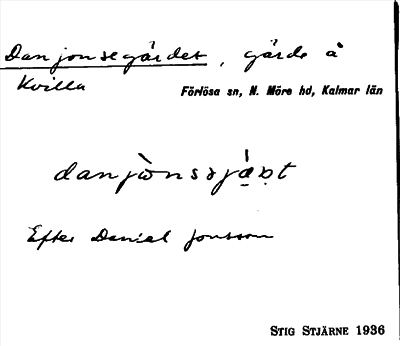 Danjonsegärdet, gärde å
Kvilla
Förlösa sn, N. Möre hd, Kalmar län
Efter Daniel Jonsson
STIG STJÄRNE 1936